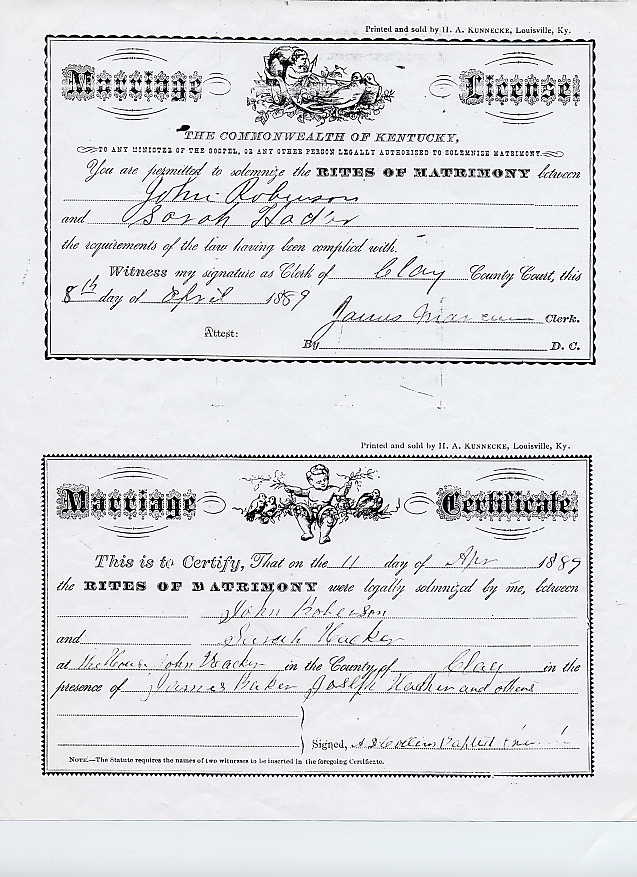 Printed and sold by H. A. KUNNECKE, Louisville, Ky.
Marriage License.
THE COMMONWEALTH OF KENTUCKY,
TO ANY MINISTER OF THE GOSPEL, OR ANY OTHER PERSON LEGALLY AUTHORISED TO SOLEMNIZE MATRIMONY.
You are permitted to solemnize the RITES OF MATRIMONY between
John Roberson
and Sarah
the requirements of the law having been complied with.
Witness my signature as Clerk of Clay County Court, this
8th day of April 1889
James Clerk.
Attest:
By D. C.
Printed and sold by H. A. KUNNECKE, Louisville, Ky.
Marriage Certificate.
This is to Certify, That on the 11 day of Apr 1889
the RITES OF MATRIMONY were legally solmnized by me, between
John Roberson
and Sarah Hacker
at the House John Hacker in the County of Clay in the
presence of James Baker Joseph Hacker and others
Signed,
NOTE.—The Statute requires the names of two witnesses to be inserted in the foregoing Certificate.